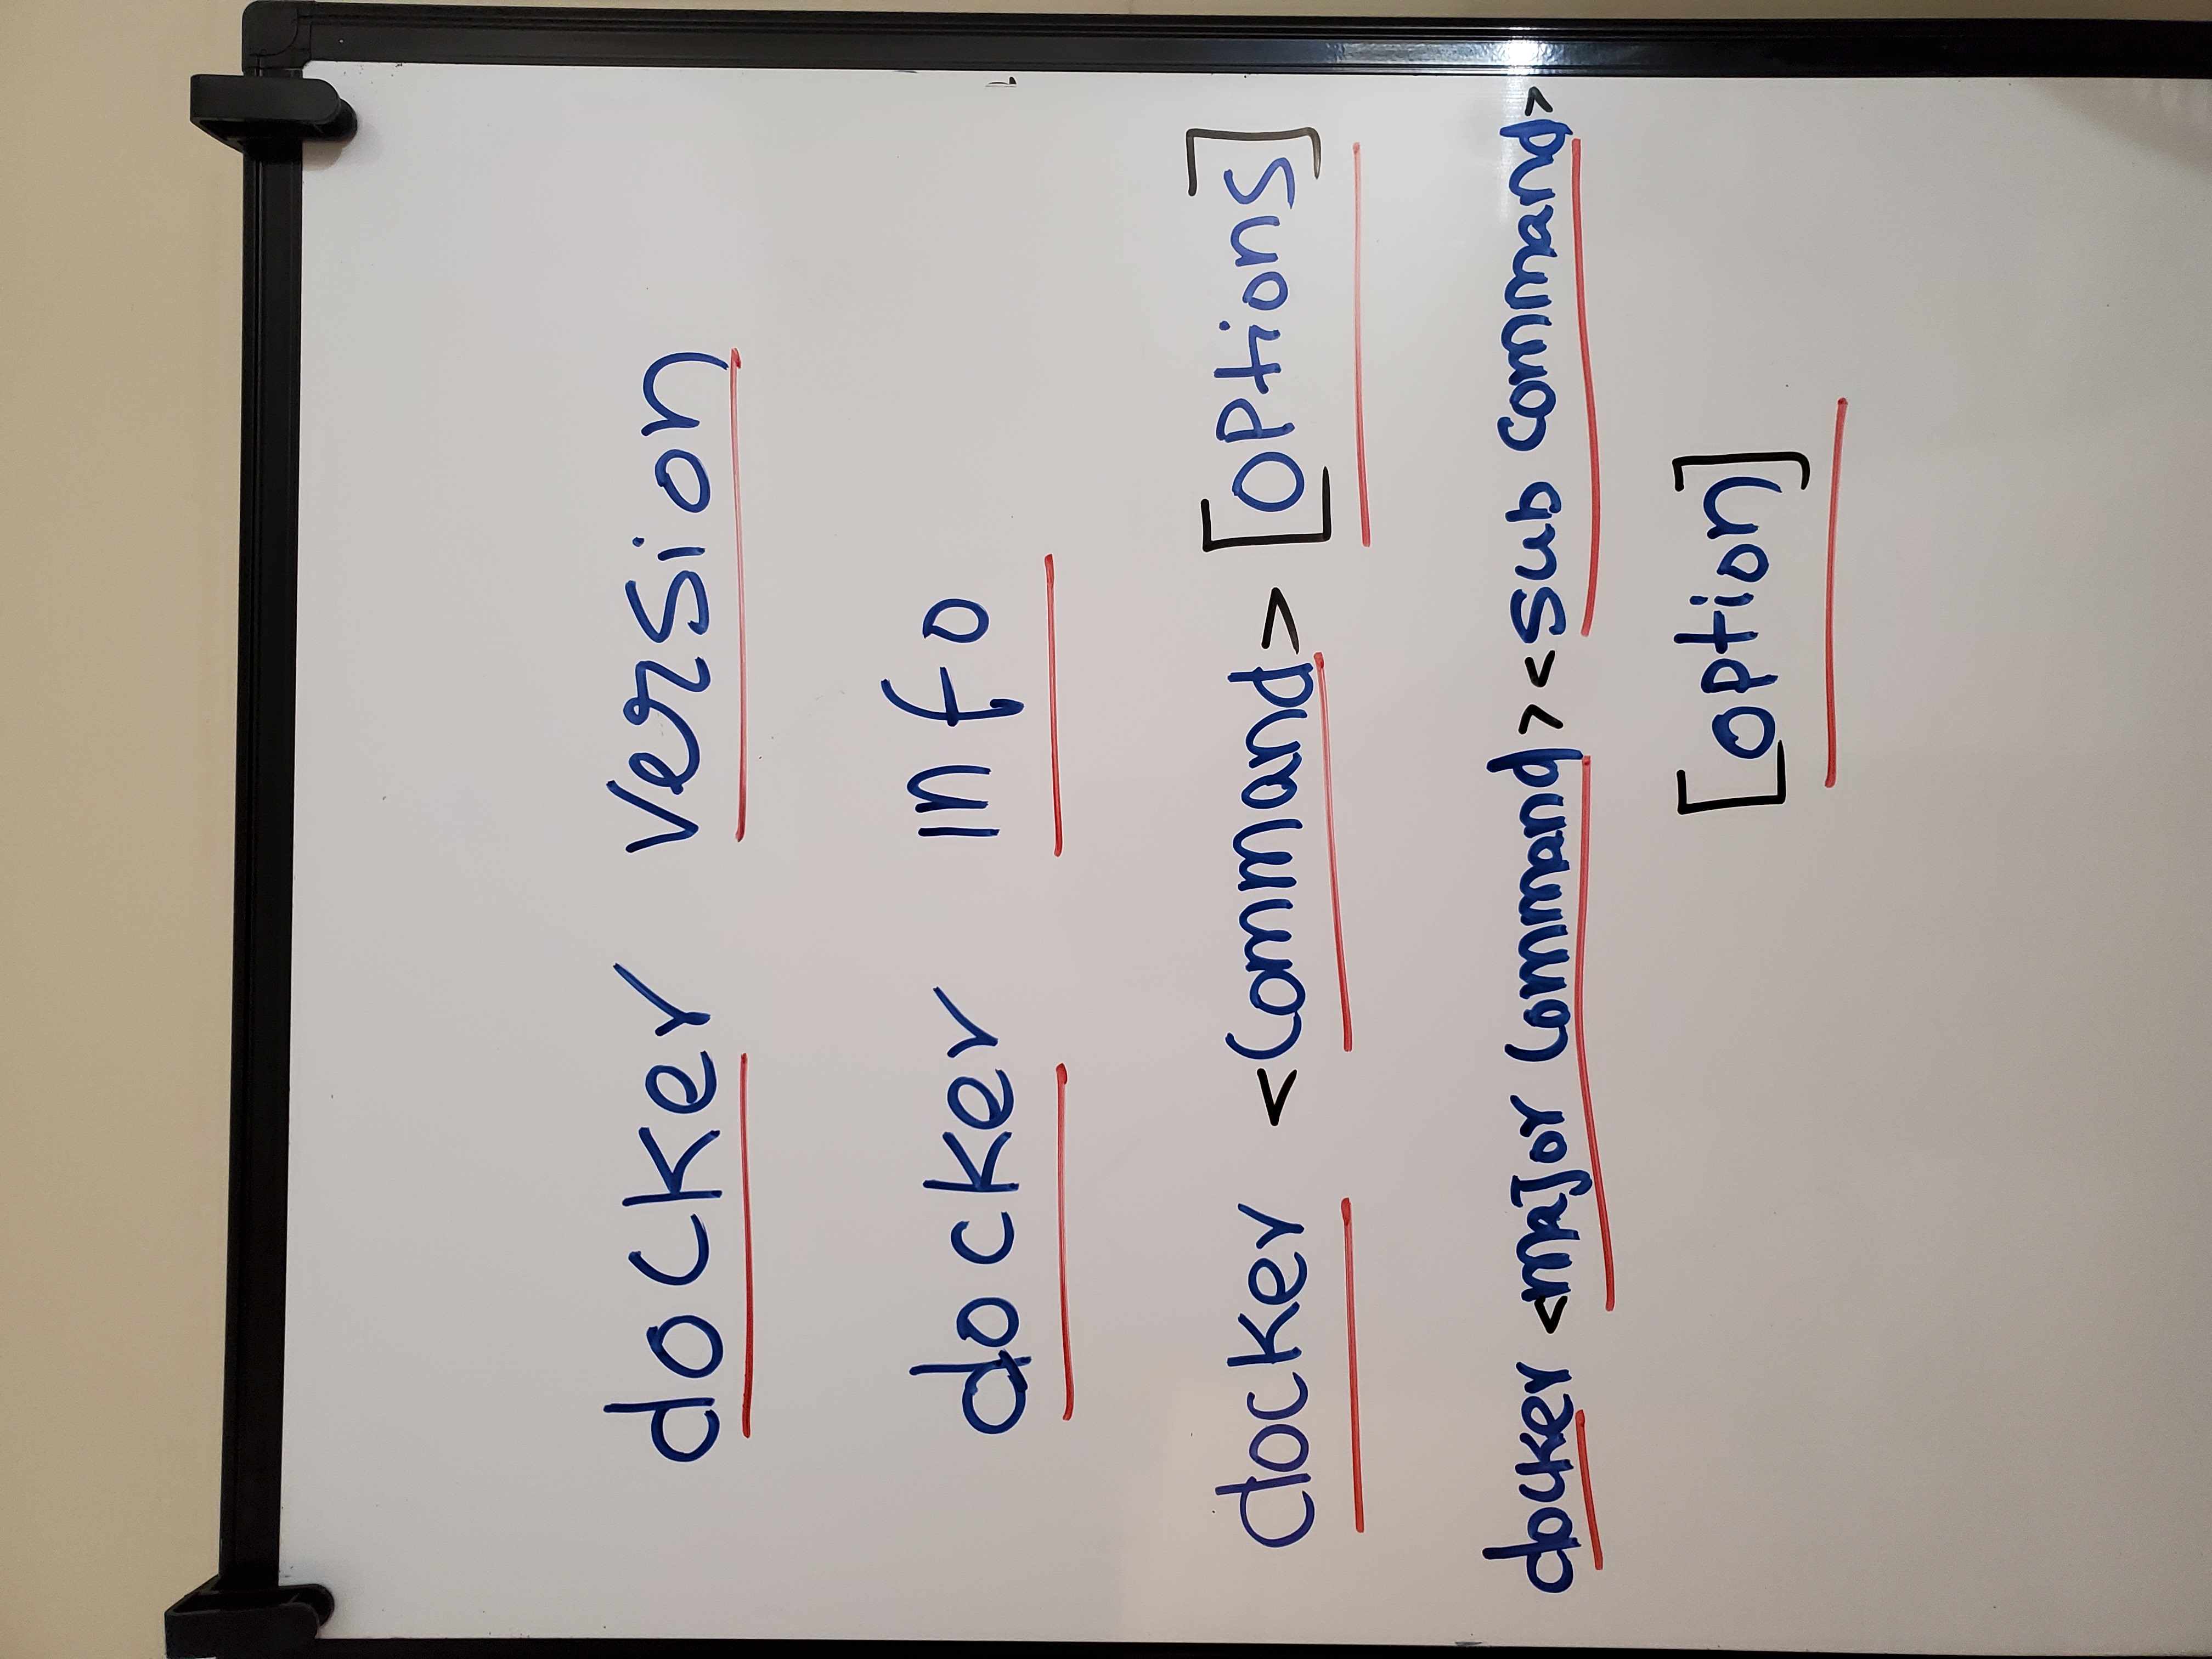 docker version
docker info
docker <command> [options]
docker <major command> <sub command>
[option]